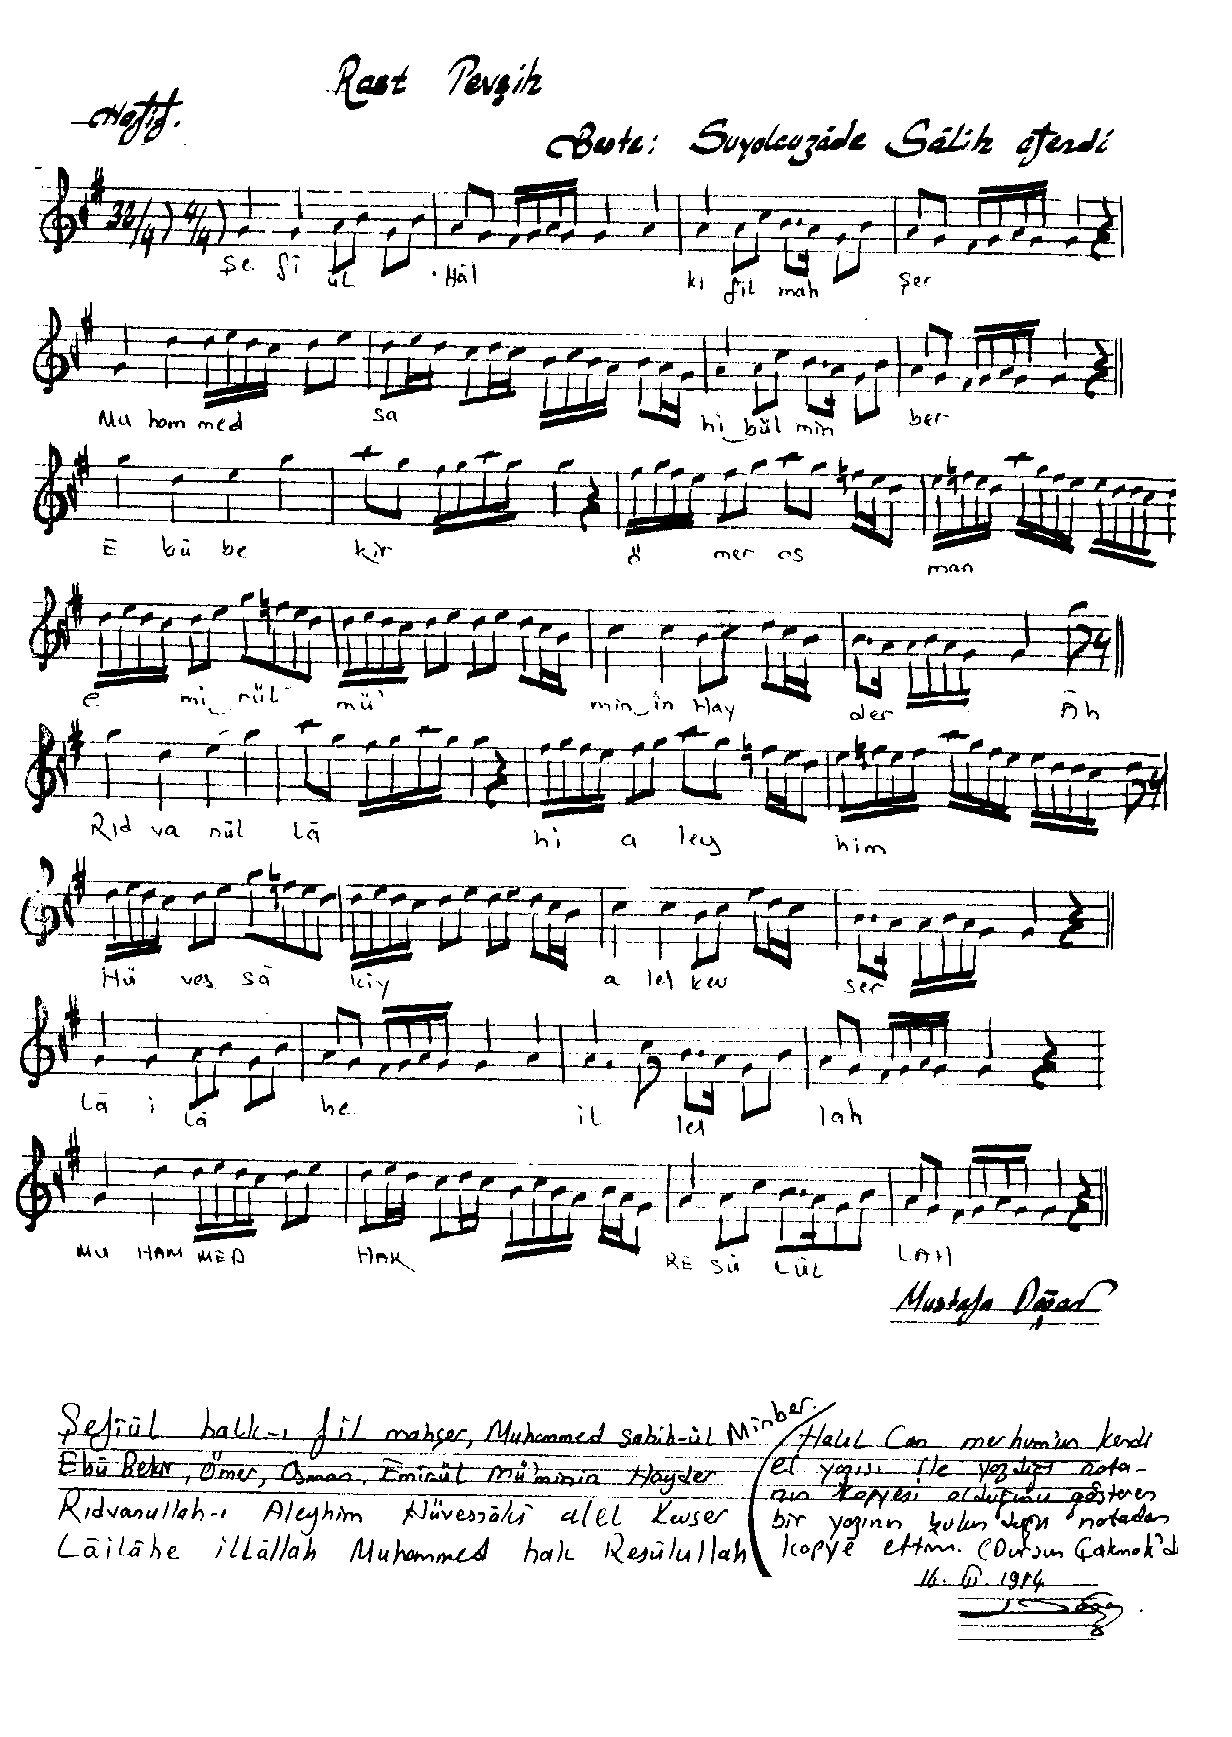 Rast Tevşih
Hafif.
Beste: Suyolcuzâde Sâlih efendi
32/4) 4/4)
Şe fî ül Hâl ki fil mah şer
Mu ham med sa hi_bül min ber
E bû be kir Ö mer os man
e mi_rül mü' min_in Hay der Âh
Rıd va nül lâ hi a ley him
Hü ves sâ kiy a lel kev ser
Lâ i lâ he il lel lah
MU HAM MED HAK RE SÛ LÜL LAH
Mustafa Doğan
Şefîül halk-ı fil mahşer, Muhammed sahib-ül Minber.
Ebû Bekir, Ömer, Osman, Emîrül Mü'minin Hayder
Rıdvanullah-ı Aleyhim Hüvessâki alel Kevser
Lâilâhe illâllah Muhammed hak Resûlullah
Halil Can merhum'un kendi
el yazısı ile yazdığı nota-
nın kopyesi olduğunu gösteren
bir yazının bulunduğu notadan
kopye ettim. (Dursun Çakmak'd
16. III. 1984